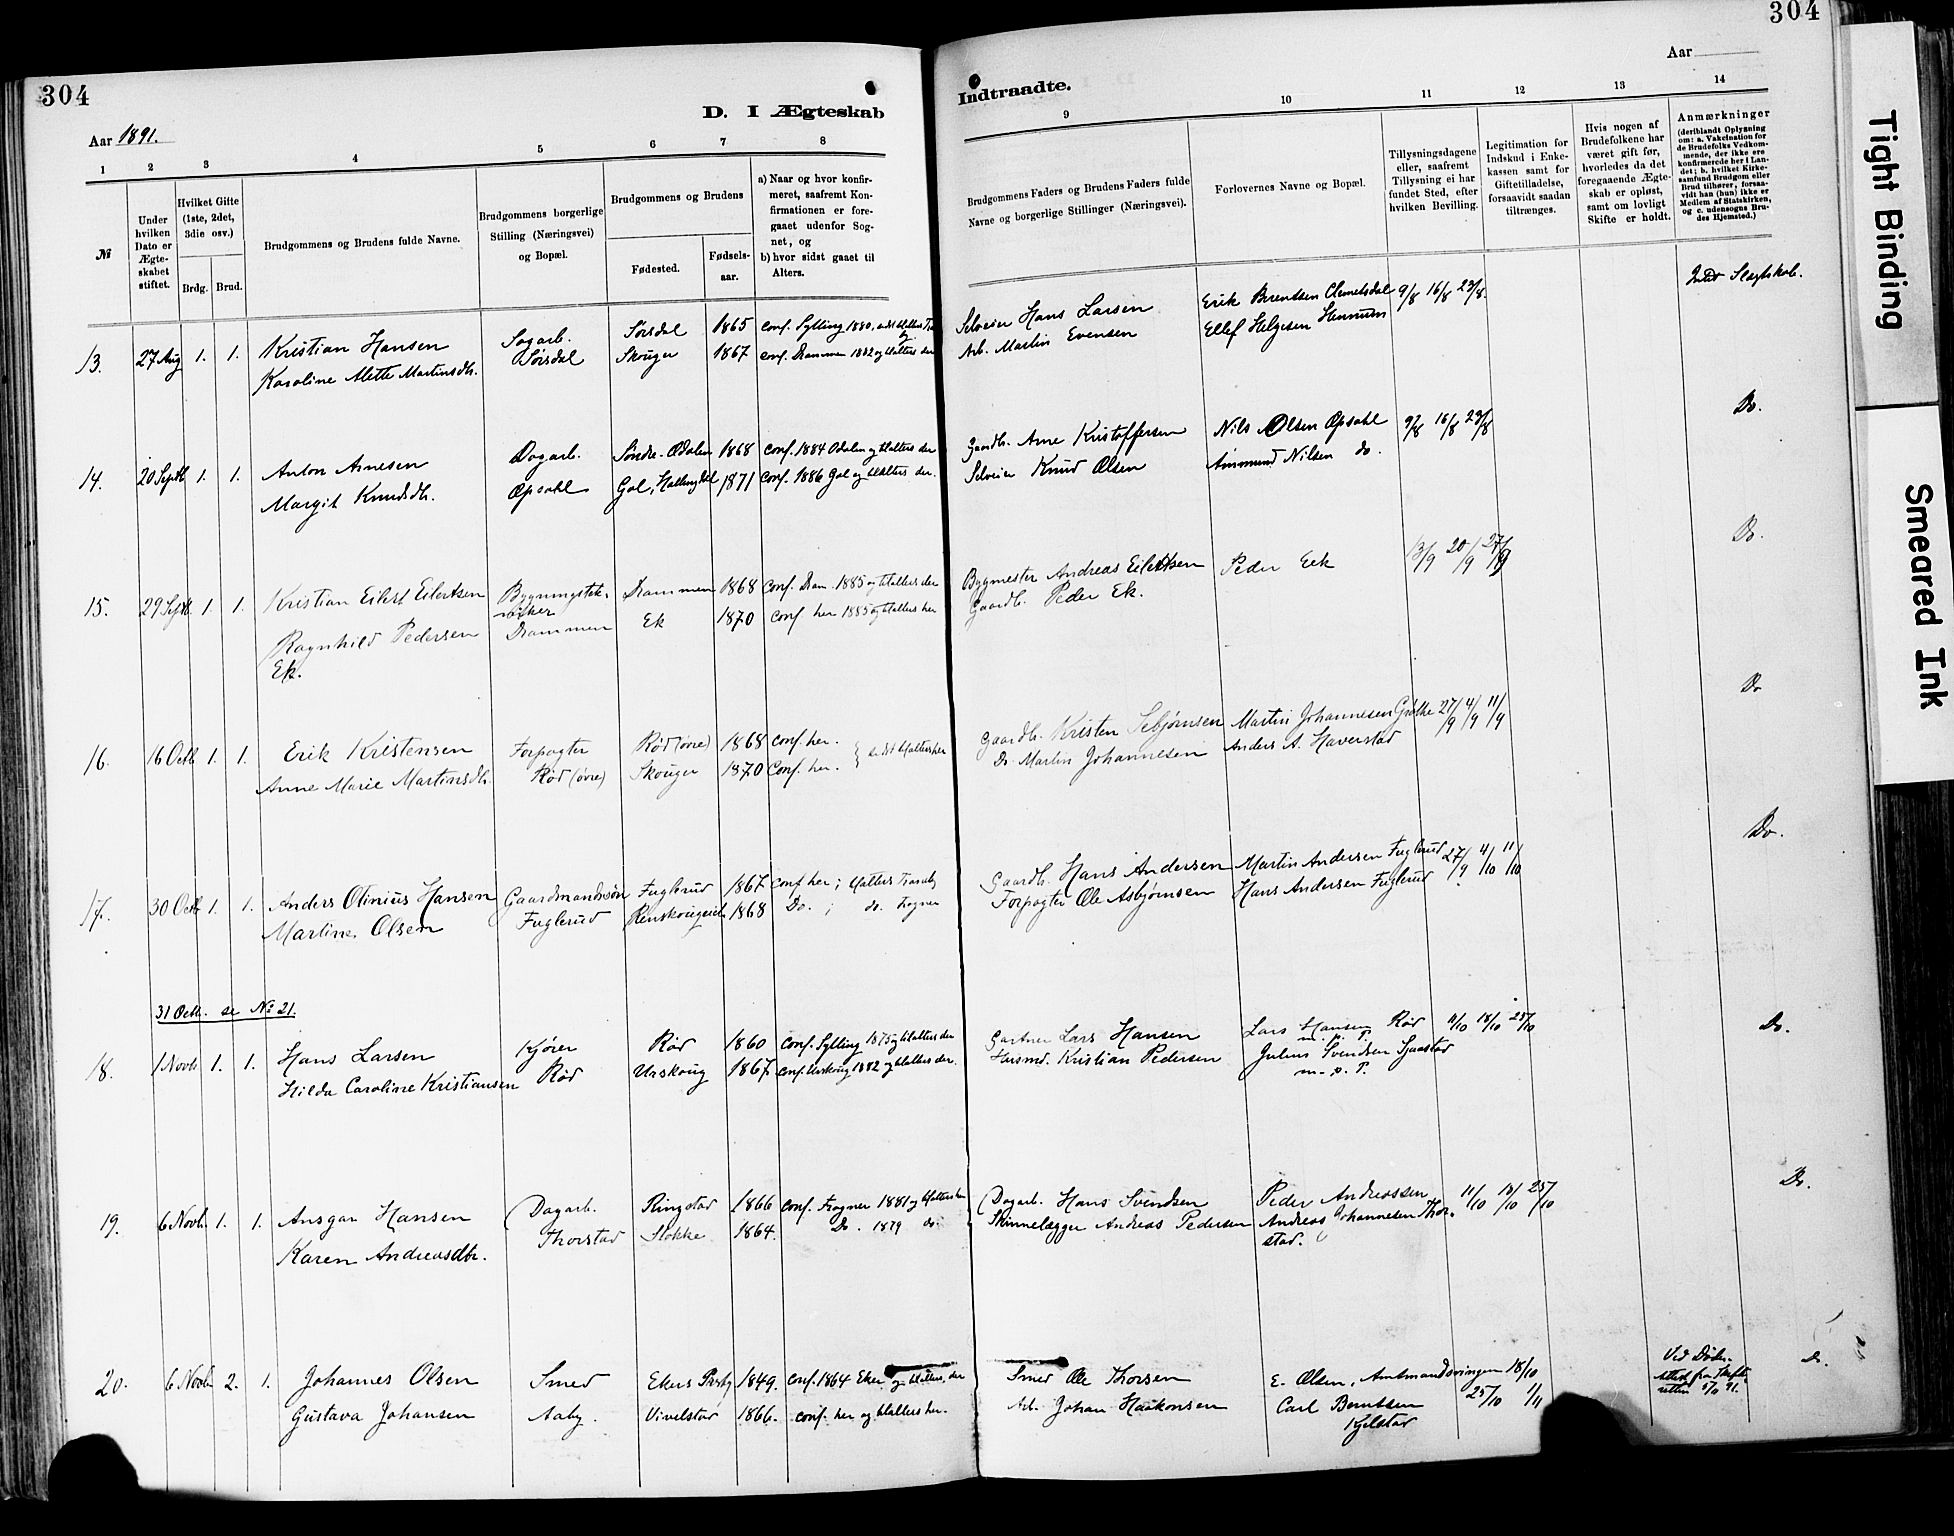 304
Aar 1891.
D. I Ægteskab
1 2 3 4 5 6 7 8
№
Under hvilken Dato er Ægteskabet stiftet.
Hvilket Gifte (1ste, 2det, 3die osv.)
Brdg. Brud.
Brudgommens og Brudens fulde Navne.
Brudgommens borgerlige Stilling (Næringsvei) og Bopæl.
Brudgommens og Brudens
Fødested.
Fødselsaar.
a) Naar og hvor konfirmeret, saafremt Konfirmationen er foregaaet udenfor Sognet, og
b) hvor sidst gaaet til Alters.
13. 27 Aug 1. 1. Kristian Hansen Sagarb. Sørsdal 1865 conf. Sylling 1880,
Karoline Alette Martinsdtr. Sørsdal Skouger 1867 conf. Drammen 1882 og tilalters der
14. 20 Septb 1. 1. Anton Arnesen Dagarb. Søndre-Odalen 1868 conf. 1884 Odalen og tilalters der
Margit Knudsdtr. Opsahl Gol, Hallingdal 1871 conf. 1886 Gol og tilalters der.
15. 29 Septb 1. 1. Kristian Eilert Eilertsen Bygningstekniker Drammen 1868 conf. Dram. 1885 og tilalters der
Ragnhild Pedersen Drammen Ek 1870 conf. her 1885 og tilalters her
Ek.
16. 16 Octb 1. 1. Erik Kristensen Forpagter Rød (øvre) 1868 conf. her. } sidst tilalters her
Anne Marie Martinsdtr. Rød (øvre) Skouger 1870 Conf. her.
17. 30 Octb 1. 1. Anders Olinius Hansen Gaardmandssøn Fuglerud 1867 conf. her; tilalters Tranby
Martine Olsen Fuglerud Renskougeie 1868 Do. ; do. Frogner
31 Octb. se No 21.
18. 1 Novb 1. 1. Hans Larsen Kjører Rød 1860 conf. Sylling 1875 og tilalters der
Hilda Caroline Kristiansen Rød Urskoug 1867 conf. Urskoug 1882 og tilalters der.
19. 6 Novb. 1. 1. Ansgar Hansen Dagarb. Ringstad 1866 conf. Frogner 1881 og tilalters her
Karen Andreasdtr. Thorstad Stokke 1864. Do. 1879 do.
20. 6 Novb 2. 1. Johannes Olsen Smed Ekers Prstg. 1849. conf. 1864 Eker og tilalters der
Gustava Johansen Aaby. Vivelstad 1866. conf. her og tilalters her.
304
Aar
Indtraadte.
9 10 11 12 13 14
Brudgommens Faders og Brudens Faders fulde Navne og borgerlige Stillinger (Næringsvei).
Forlovernes Navne og Bopæl.
Tillysningsdagene eller, saafremt Tillysning ei har fundet Sted, efter hvilken Bevilling.
Legitimation for Indskud i Enkekassen samt for Giftetilladelse, forsaavidt saadan tiltrænges.
Hvis nogen af Brudefolkene har været gift før, hvorledes da det foregaaende Ægteskab er opløst, samt om lovligt Skifte er holdt.
Anmærkninger
(deriblandt Oplysning om: a. Vakcination for de Brudefolks Vedkommende, der ikke ere konfirmerede her i Landet; b. hvilket Kirkesamfund Brudgom eller Brud tilhører, forsaavidt han (hun) ikke er Medlem af Statskirken, og c. udensogns Brudes Hjemsted.)
Selveier Hans Larsen Erik Berentsen Clemetsdal 9/8 16/8 23/8. Intet Slægtskab.
Arb. Martin Evensen Ellef Helgesen Hennum
Gaardb. Arne Kristoffersen Nils Olsen Opsahl 9/8 16/8 23/8 Do.
Selveier Knud Olsen Ammund Nilsen do.
Bygmester Andreas Eilertsen Peder Eek 13/9 20/9 27/9 Do.
Gaardb. Peder Ek.
Gaardb. Kristen Martin Johannesen Grøtte 27/9 4/9 11/9 Do
Do. Martin Johannesen Anders A. Haverstad
Gaardb. Hans Andersen Martin Andersen Fuglerud 27/9 4/10 11/10 Do.
Forpagter Ole Asbjørnsen Hans Andersen Fuglerud
Gartner Lars Hansen Lars Hansen Rød 11/10 18/10 25/10 Do.
m. p. P.
Husmd. Kristian Pedersen Julius Svendsen Sjaastad
m. p. P.
Dagarb. Hans Svendsen Peder Andreassen 11/10 18/10 25/10 Do.
Skinnelægger Andreas Pedersen Andreas Johannesen Thorstad.
Smed Ole Thorsen E. Olsen, Amtmandsvingen 18/10 Ved Døds-attest fra Skifteretten 5/11 91. Do.
Arb. Johan Haakonsen Carl Berntsen 25/10 1/11
Kjelstad
Tight Binding
Smeared Ink